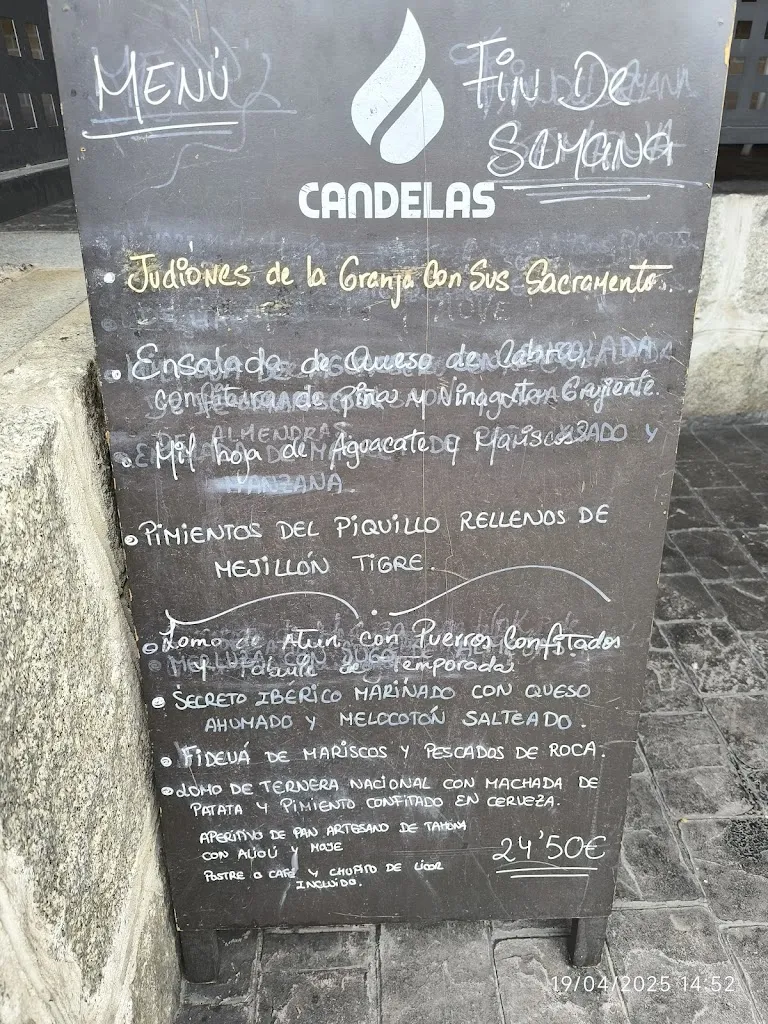 MENÚ
FIN DE
SEMANA
CANDELAS
• Judiones de la Granja Con Sus Sacramentos.
• Ensalada de Queso de Cabra,
confitura de Piña y Vinagreta Crujiente.
ALMENDRAS
• Mil hoja de Aguacate y Mariscos
MANZANA.
• PIMIENTOS DEL PIQUILLO RELLENOS DE
MEJILLÓN TIGRE.
• Lomo de Atún con Puerros Confitados
y de Temporada
• SECRETO IBERICO MARIÑADO CON QUESO
AHUMADO Y MELOCOTÓN SALTEADO.
• FIDEUÁ DE MARISCOS Y PESCADOS DE ROCA.
• LOMO DE TERNERA NACIONAL CON MACHADA DE
PATATA Y PIMIENTO CONFITADO EN CERVEZA.
APERITIVO DE PAN ARTESANO DE TAHONA
CON ALIOLI Y MOJE
24'50€
POSTRE O CAFE Y CHUPITO DE LICOR
INCLUIDO.
19/04/2025 14:52